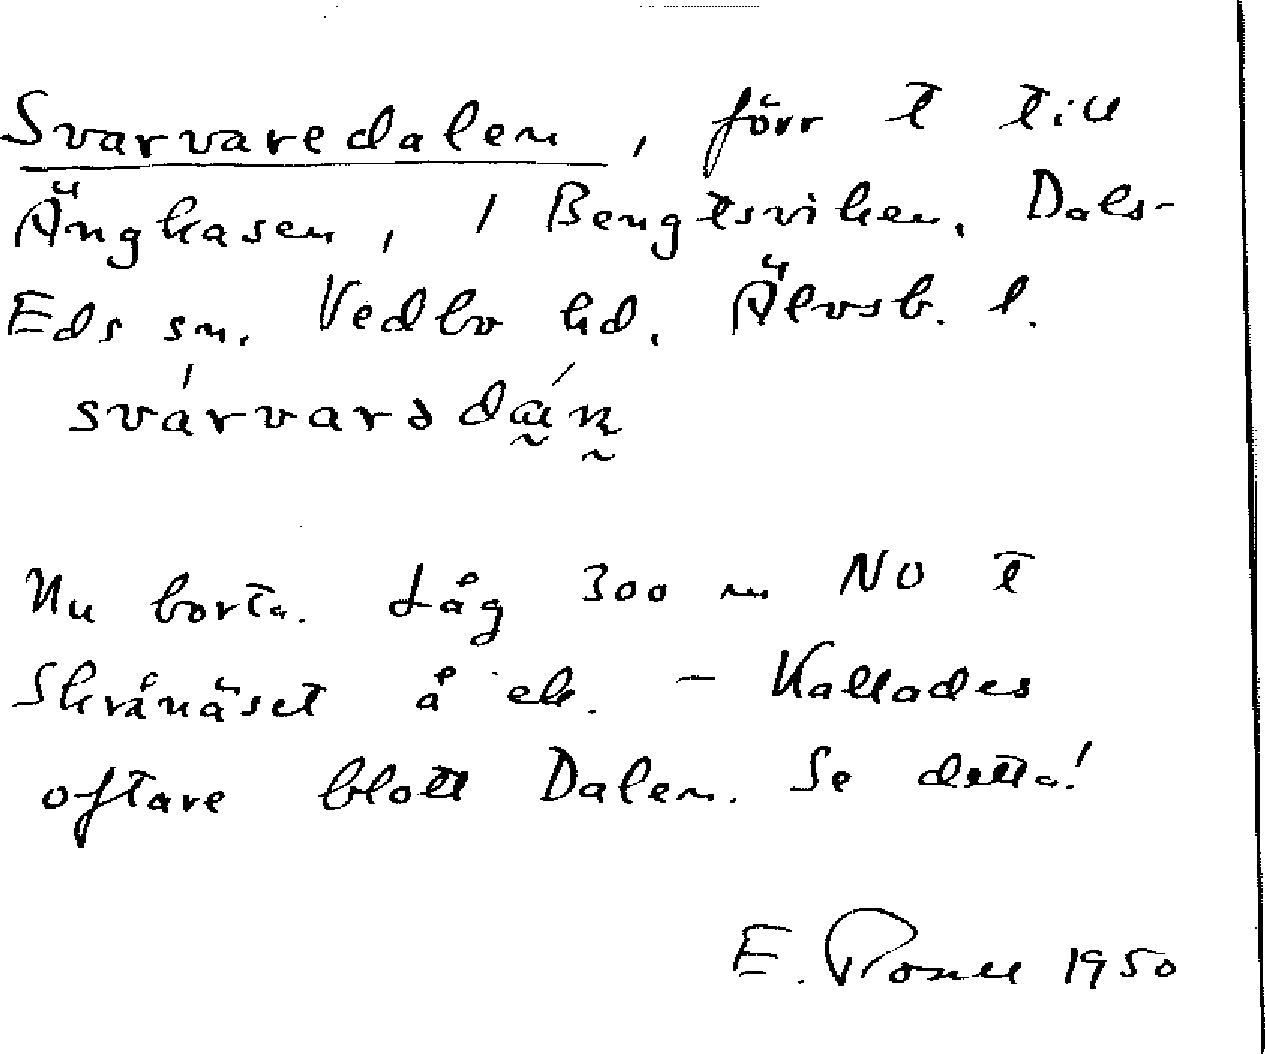 Svarvaredalen, förr t till
Ängkasen, 1 Bengtsviken, Dals-
Eds sn. Vedbo hd. Älvsb. l.
svárvarə
Nu borta. Låg 300 m NO t
Skrånäset å ek. – Kallades
oftare blott Dalen. Se detta!
E. 1950